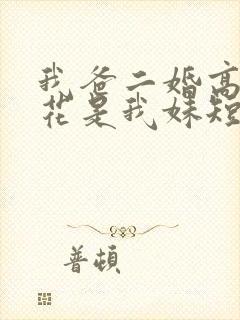 我爸二婚高
花是我妹短
普頓